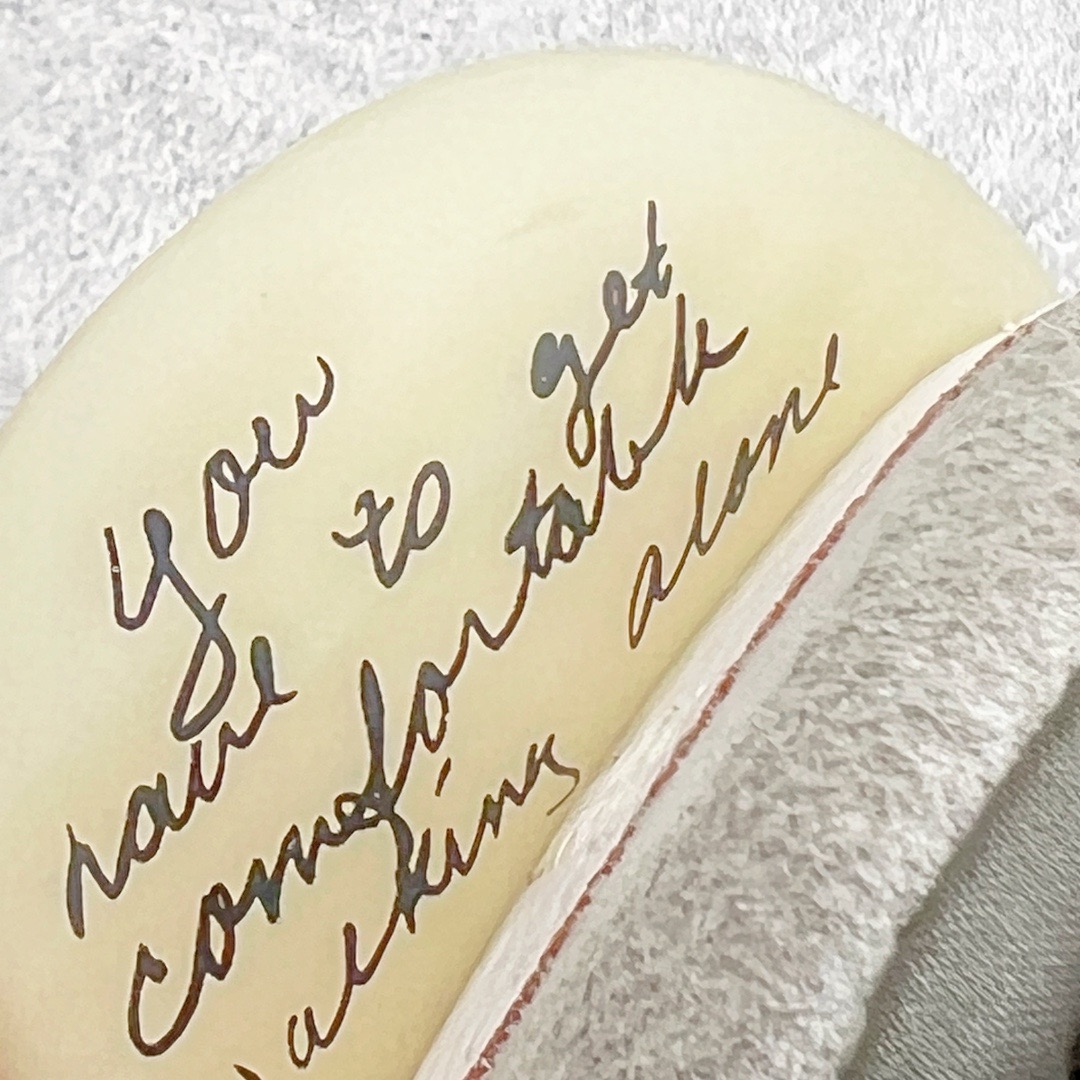 You
have to get
comfortable
alking alone